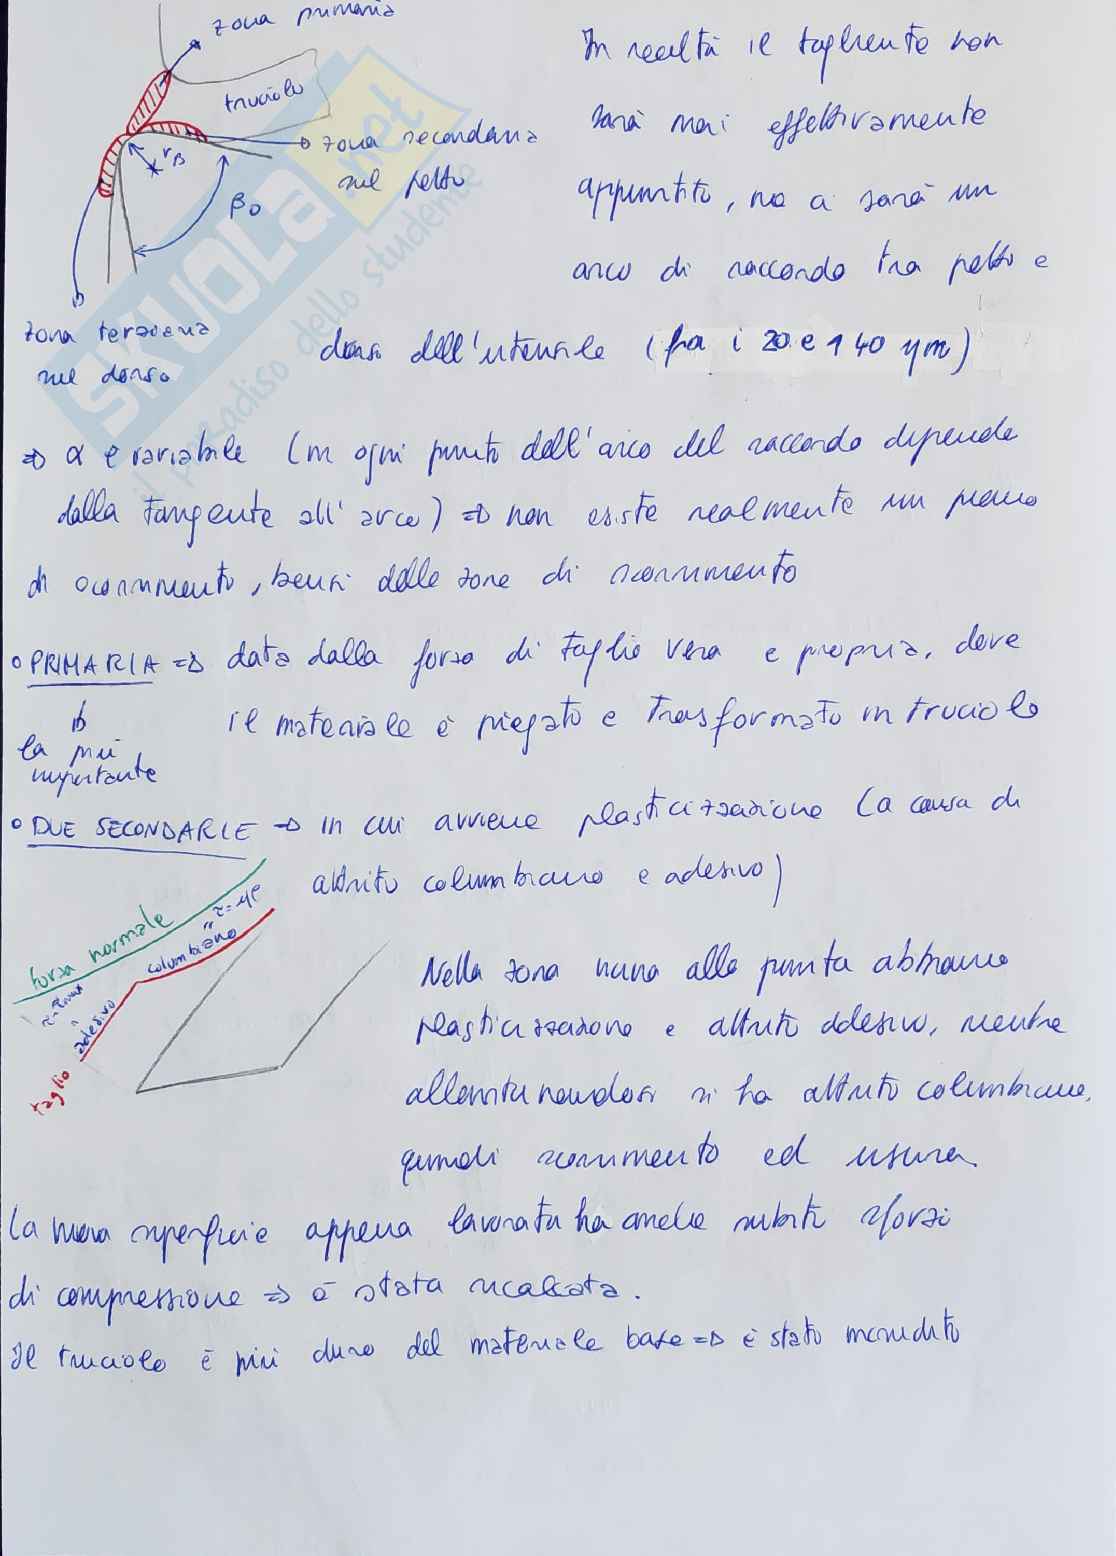 zona primaria
truciolo
zona secondaria
sul petto
rβ
β0
zona terziaria
sul dorso
SKUOLA.net
il paradiso dello studente
In realtà il tagliente non
sarà mai effettivamente
appuntito, ma ci sarà un
arco di raccordo tra petto e
dorso dell'utensile (fra i 20 e 140 μm)
=> α è variabile (in ogni punto dell'arco del raccordo dipende
dalla tangente all'arco) => non esiste realmente un piano
di scorrimento, bensì delle zone di scorrimento
• PRIMARIA => data dalla forza di taglio vera e propria, dove
il materiale è piegato e trasformato in truciolo
la più
importante
• DUE SECONDARIE -> in cui avviene plasticizzazione (a causa di
attrito columbiano e adesivo)
forza normale
columbiano
τ=μp
τ=τmax
adesivo
taglio
Nella zona vicina alla punta abbiamo
plasticizzazione e attrito adesivo, mentre
allontanandosi si ha attrito columbiano,
quindi scorrimento ed usura.
La nuova superficie appena lavorata ha anche subito sforzi
di compressione => è stata ricalcata.
Il truciolo è più duro del materiale base => è stato incrudito